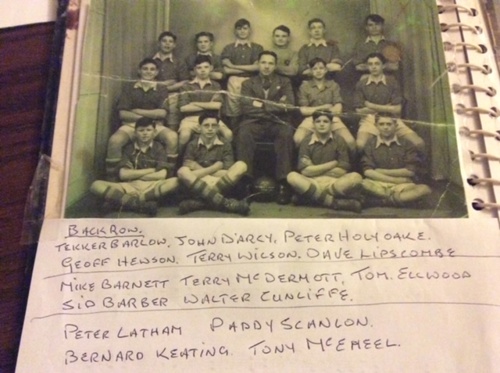 BACK ROW.
TEKKER BARLOW, JOHN D'ARCY, PETER HOLYOAKE.
GEOFF HEWSON. TERRY WILSON. DAVE LIPSCOMBE
MIKE BARNETT TERRY MCDERMOTT, TOM. ELLWOOD
SID BARBER WALTER CUNLIFFE.
PETER LATHAM PADDY SCANLON.
BERNARD KEATING. TONY MCEHEEL.